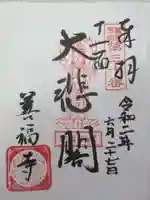 奉拝
令和二年
六月二十七日
十一面
大悲閣
善福寺